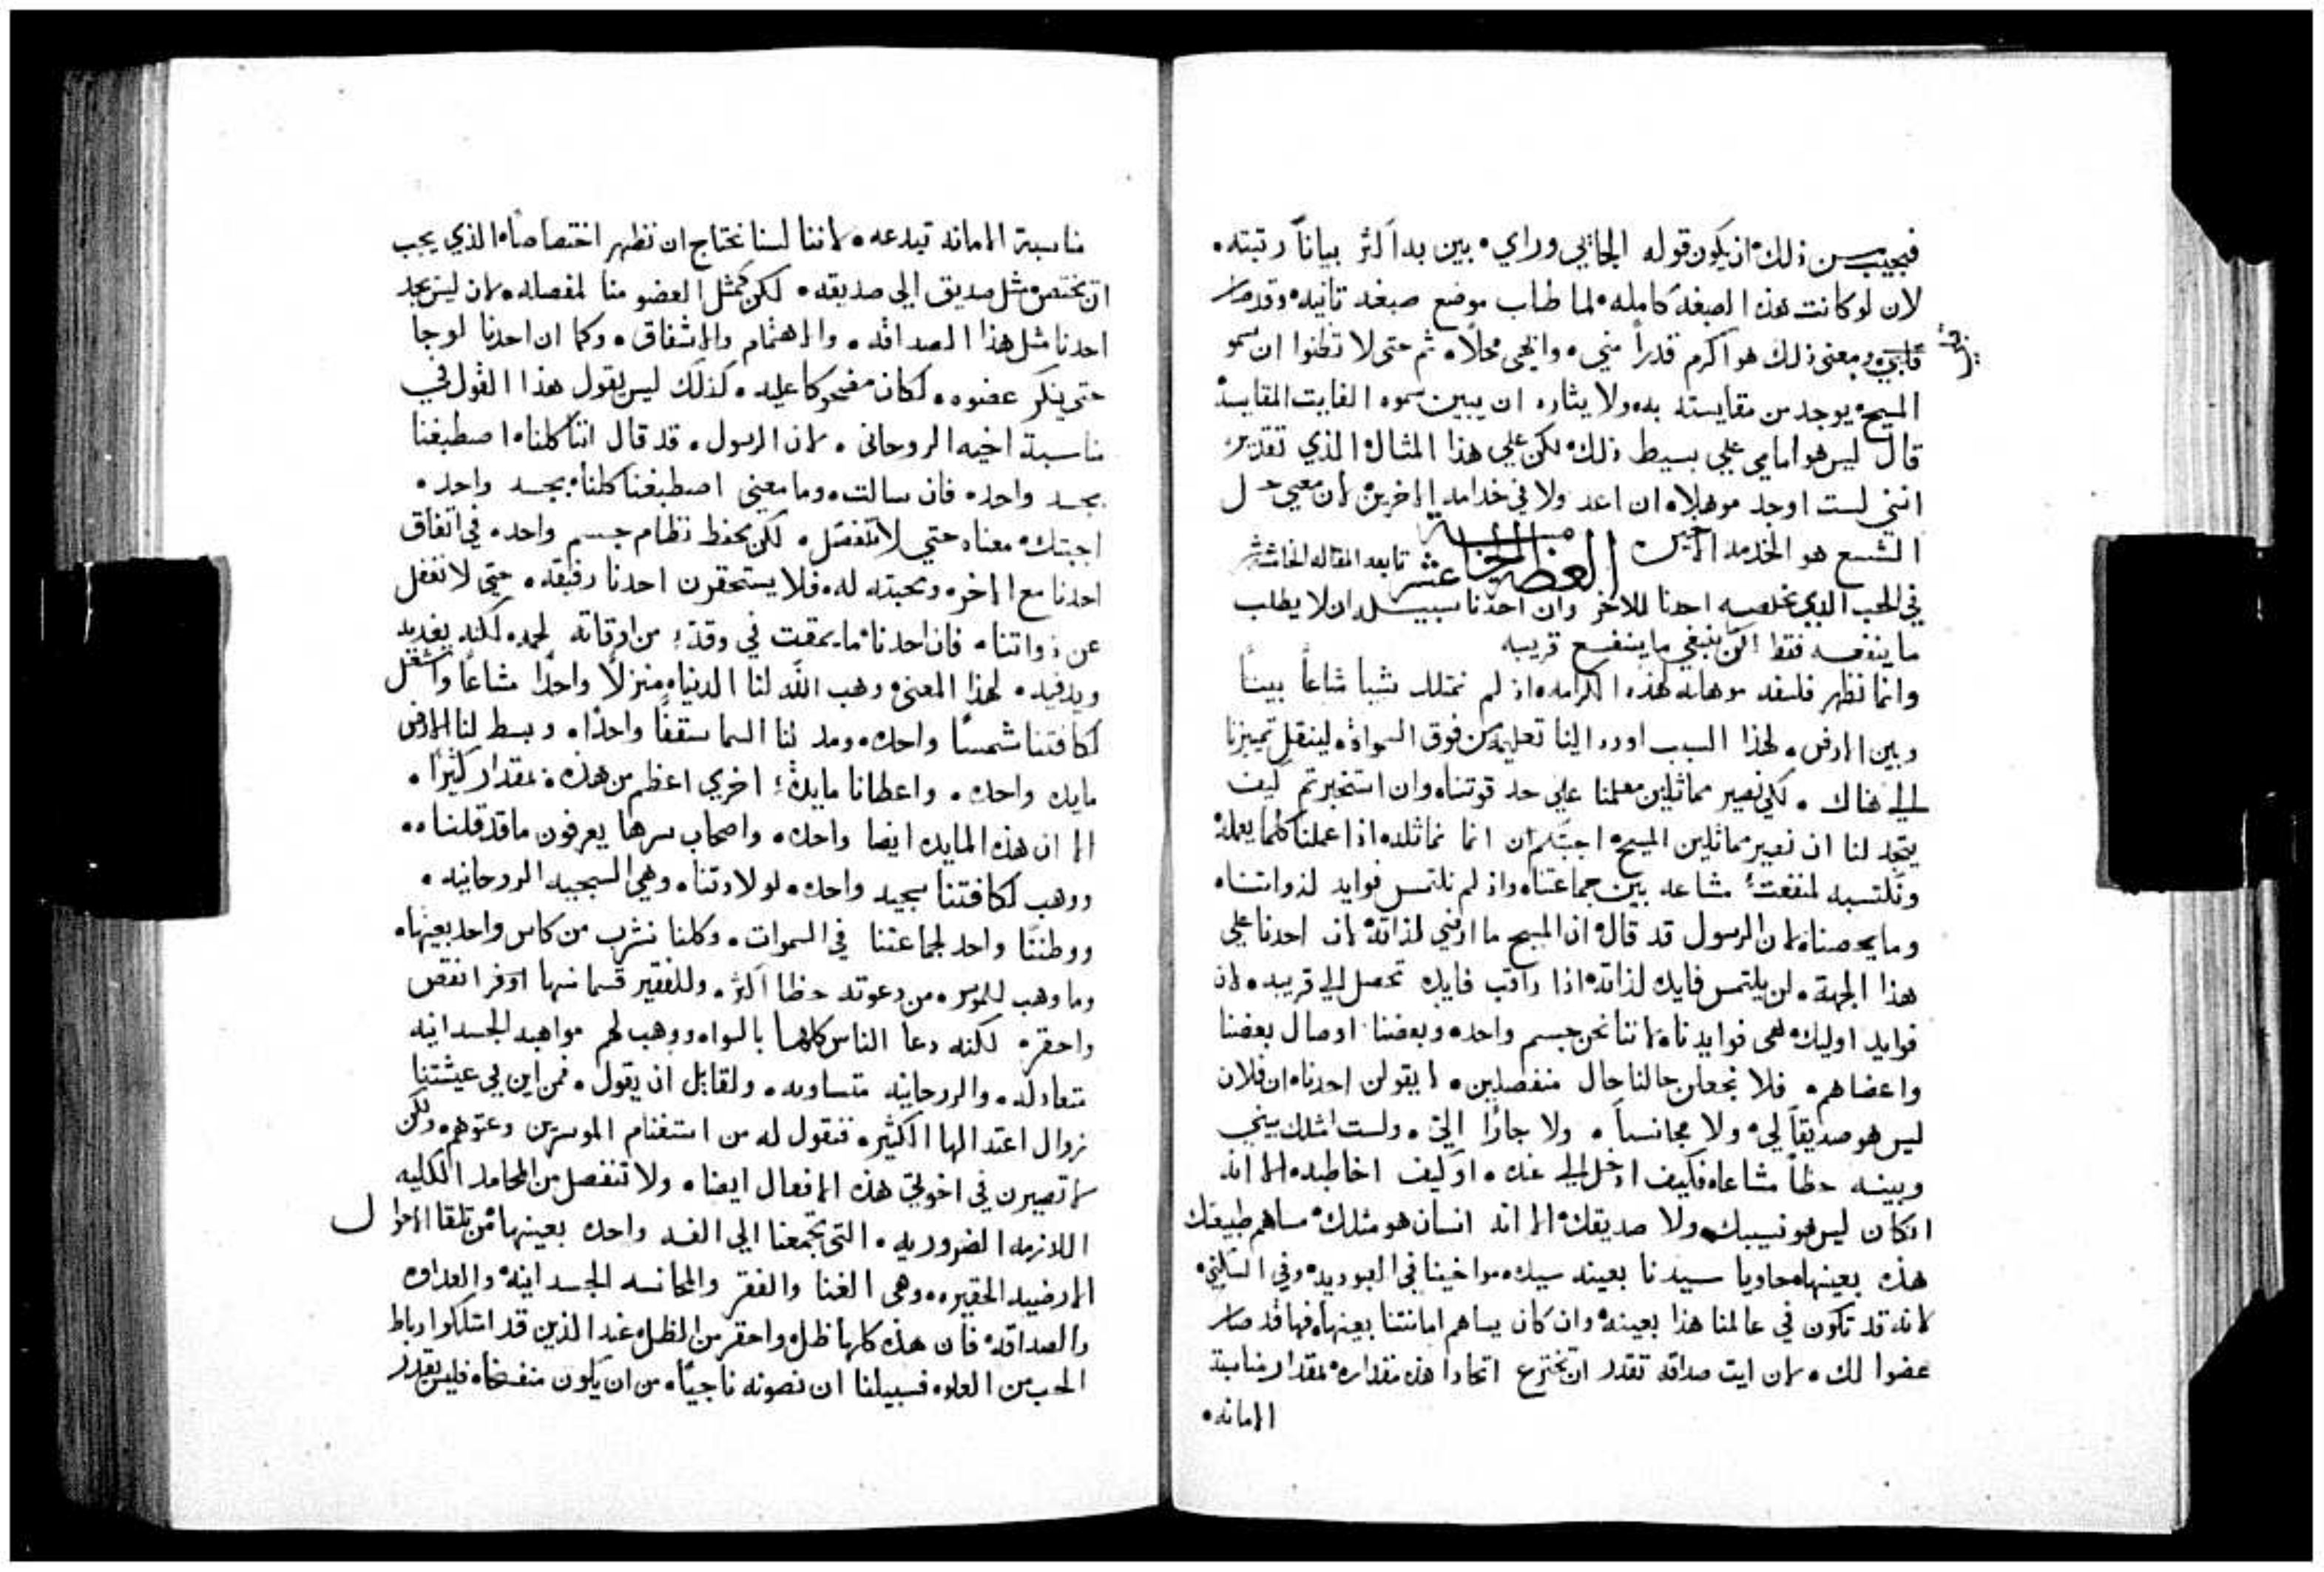 فيجيب من ذلك ان يكون قوله الجاييي وراي • بين بدا اكثر بياناً رتبته •
لان لو كانت هذه الصبغة كامله • لما طاب موضع صبغه ثانيه • وقد صار
قدامي • ومعنى ذلك هو اكرم قدراً مني • وابهى محلاً • ثم حتى لا تظنوا ان سمو
المسيح • يوجد من مقايسته به • ولايثاره ان يبين سموه الفايت المقايسة
قال ليس هو امامي علي بسيط ذلك • لكن علي هذا المثال الذي تقديره
انني لست اوجد موهلا • ان اعد ولا في خدامه الاخرين • لان معني حل
الشسع هو الخدمه الاخيره
العظه الخامسة عشر تابعه المقاله الخامسة عشر
في الحب الذي نخلصه احدنا للاخر وان احدنا سبيله ان لا يطلب
ما ينفعه فقط لكن ينبغي ما ينفع قريبه
وانما نظهر فلسفه موهله لهذه الكرامه • اذ لم نمتلك شيا شاعاً بيننا
وبين الارض • لهذا السبب اورد الينا تعليمه من فوق السموات • لينقل تمييزنا
الي هناك • لكي نصير مماثلين معلمنا علي حد قوتنا • وان استخبرتم كيف
يتجه لنا ان نصير مماثلين المسيح • اجبتكم ان انما نماثله • اذا عملنا كلما يعمله
ونكتسبه لمنفعة مشاعه بين جماعتنا • واذ لم نلتمس فوايد لذواتنا •
وما يخصنا • لان الرسول قد قال • ان المسيح ما ارضي لذاته • لان احدنا علي
هذا الجهة • لن يلتمس فايده لذاته • اذا راقب فايده تحصل الي قريبه • لان
فوايد اوليك هي فوايدنا • لاننا نحن جسم واحد • وبعضنا اوصال بعضنا
واعضاهم • فلا نجعلن حالنا حال منفصلين • لا يقولن احدنا • ان فلان
ليس هو صديقاً لي • ولا مجانساً • ولا جارًا الي • ولست امتلك بيني
وبينه حظاً مشاعا • فكيف ادخل الي عنده • او كيف اخاطبه • الا انه
ان كان ليس هو نسيبك ولا صديقك • الا انه انسان هو مثلك • مساهم طبيعتك
هذه بعينها • حاويا سيدنا بعينه سيده • مواخينا في العبوديه • وفي السكني •
لانه قد تكون في عالمنا هذا بعينه • وان كان يساهم امانتنا بعينها • فها قد صار
عضوا لك • لان ايت صداقه تقدر ان تخترع اتحادا هذه مقداره • بمقدار مناسبة
الامانه •
مناسبة الامانه تبدعه • لاننا لسنا نحتاج ان نظهر اختصاصا • الذي يجب
ان نختص • مثل صديق الي صديقه • لكن كمثل العضو منا لمفصله • لان ليس يجد
احدنا مثل هذا الصداقه • والاهتمام والاشفاق • وكما ان احدنا لو جا
حتي ينكر عضوه • لكان مضحوكا عليه • كذلك ليس يقول هذا القول في
مناسبة اخيه الروحاني • لان الرسول • قد قال اننا كلنا • اصطبغنا
بجسد واحد • فان سالت • وما معني اصطبغنا كلنا • بجسد واحد •
اجبتك • معناه حتي لا ننفصل • لكن نحفظ نظام جسم واحد • في اتفاق
احدنا مع الاخر • ومحبته له • فلا يستحقرن احدنا رفيقه • حتي لا نغفل
عن ذواتنا • فان احدنا • ما يمقت في وقت من اوقاته لحمه • لكنه يغديه
ويدفيه • لهذا المعني • وهب الله لنا الدنيا • منزلاً واحداً مشاعاً واشعل
لكافتنا شمساً واحده • ومد لنا السما سقفاً واحداً • وبسط لنا الارض
مايده واحده • واعطانا مايدة اخري اعظم من هذه • بمقدار كثيراً •
الا ان هذه المايده ايضا واحده • واصحاب سرها يعرفون ما قد قلناه •
ووهب لكافتنا سجيه واحده • لولادتنا • وهي السجيه الروحانيه •
ووطننًا واحد لجماعتنا في السموات • وكلنا نشرب من كاس واحد بعينها •
وما وهب للموسر • من دعوته حظا اكثر • وللفقير قسما منها اوفر انقص
واحقر • لكنه دعا الناس كلهما بالسوا • ووهب لهم مواهبه الجسدانيه
متعادله • والروحانيه متساويه • ولقايل ان يقول • فمن اين لي عيشتنا
زوال اعتدالها الكثير • فنقول له من استغنام الموسرين وعتوهم • ولكن
لا تصيرن في اخوتي هذه الافعال ايضا • ولا تنفصل من المحامد الكليه
اللازمه الضروريه • التي تجمعنا الي الفه واحده بعينها • من تلقا الاحوال
الارضيه الحقيره • وهي الغنا والفقر والمجانسه الجسدانية • والعداوه
والصداقه • فان هذه كلها ظل • واحقر من الظل • عند الذين قد امتلكوا رباط
الحب من العلو • فسبيلنا ان نصونه ناجياً • من ان يكون منفسخا • فليس تقدر